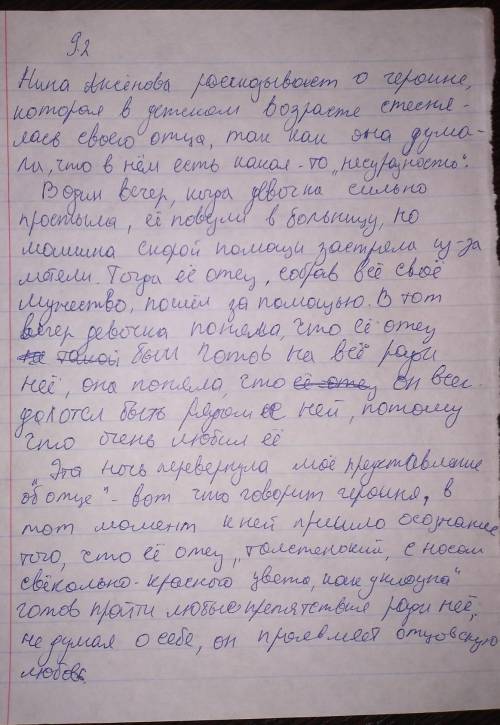 9.2
Нина Аксёнова рассказывает о героине,
которая в детском возрасте стесня-
лась своего отца, так как она дума-
ла, что в нём есть какая-то „несуразность“.
В один вечер, когда девочка сильно
простыла, её повезли в больницу, но
машина скорой помощи застряла из-за
метели. Тогда её отец, собрав всё своё
мужество, пошёл за помощью. В тот
вечер девочка поняла, что её отец
такой был готов на всё ради
неё, она поняла, что её отец он всег
да хотел быть рядом с ней, потому
что очень любил её
„Эта ночь перевернула моё представление
об отце“ - вот что говорит героиня, в
тот момент к ней пришло осознание
того, что её отец „толстенький, с носом
свёкольно-красного цвета, как у клоуна“
готов пройти любые препятствия ради неё,
не думая о себе, он проявляет отцовскую
любовь.